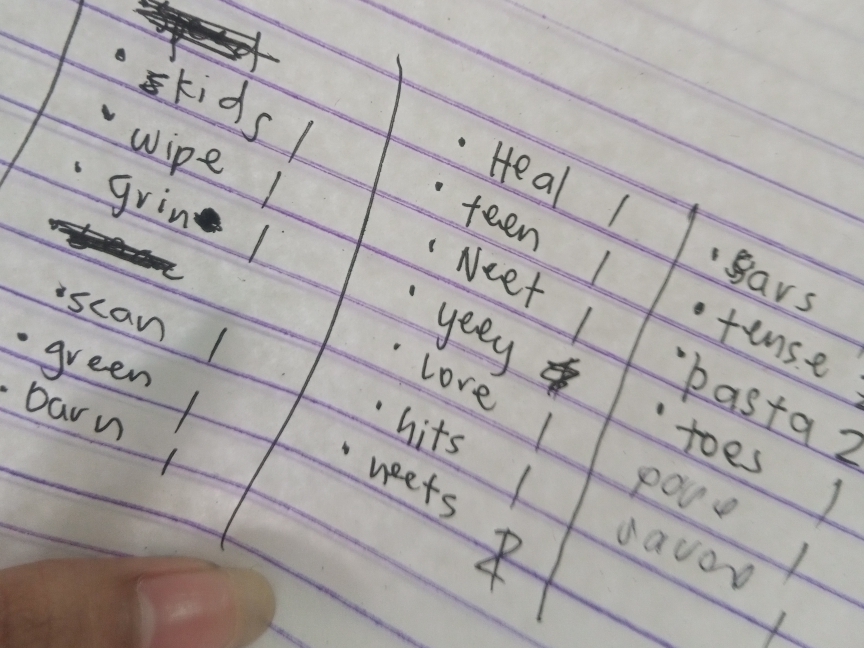 • skids /
• wipe /
• grin /
• scan /
• green /
• barn /
• Heal /
• teen /
• Neet /
• yeey
• Love /
• hits /
• neets 2
• gars /
• tense
• pasta 2
• toes /